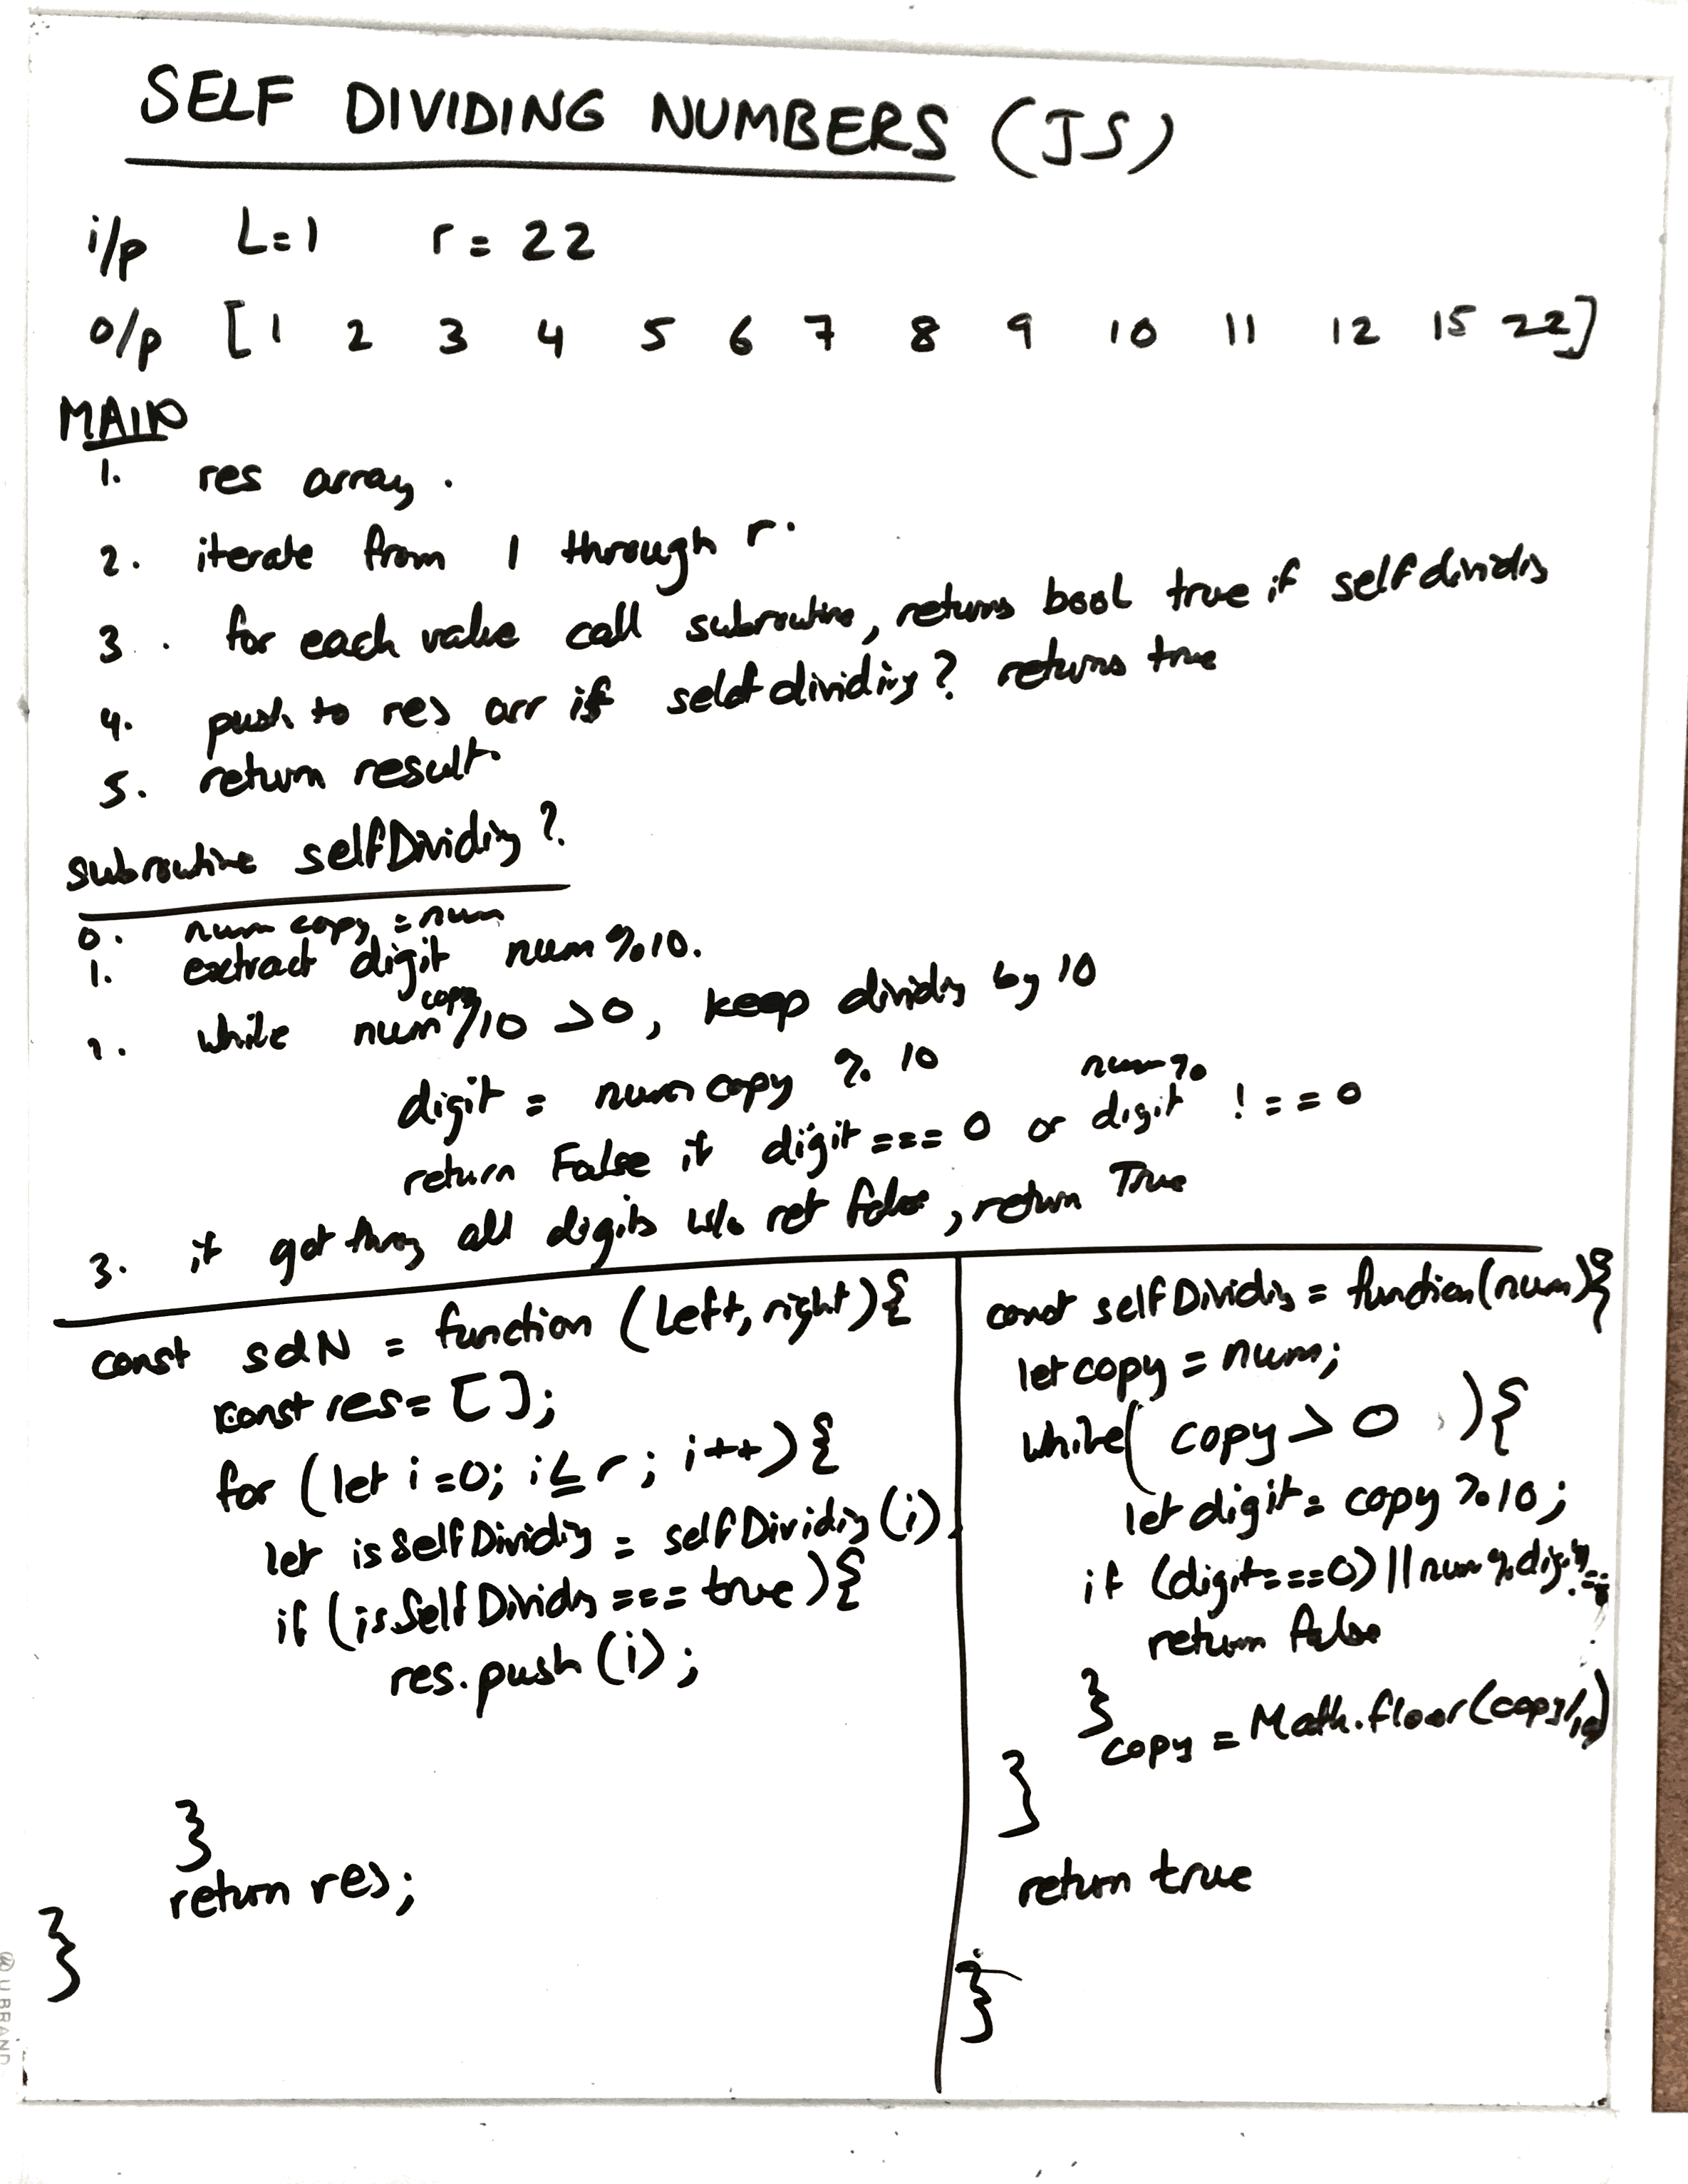 SELF DIVIDING NUMBERS (JS)
i/p L=1 r = 22
o/p [1 2 3 4 5 6 7 8 9 10 11 12 15 22]
MAIN
1. res array.
2. iterate from 1 through r.
3. for each value call subroutine, returns bool true if self dividing
4. push to res arr if self dividing? returns true
5. return result.
subroutine selfDividing?
0. num copy = num
1. extract digit num %10.
2. while num copy %10 >0, keep dividing by 10
digit = num copy % 10
return False if digit === 0 or num % digit !== 0
3. if got thru all digits w/o ret false, return True
const sdN = function (left, right){
const res= [];
for (let i=0; i≤r; i++){
let isSelfDividing = selfDividing(i)
if (isSelfDividing === true){
res.push(i);
}
return res;
}
const selfDividing = function(num){
let copy = num;
while( copy > 0 ){
let digit = copy %10;
if (digit===0) || num % digit !==
return false
}
copy = Math.floor(copy/10)
}
return true
}
U BRAND